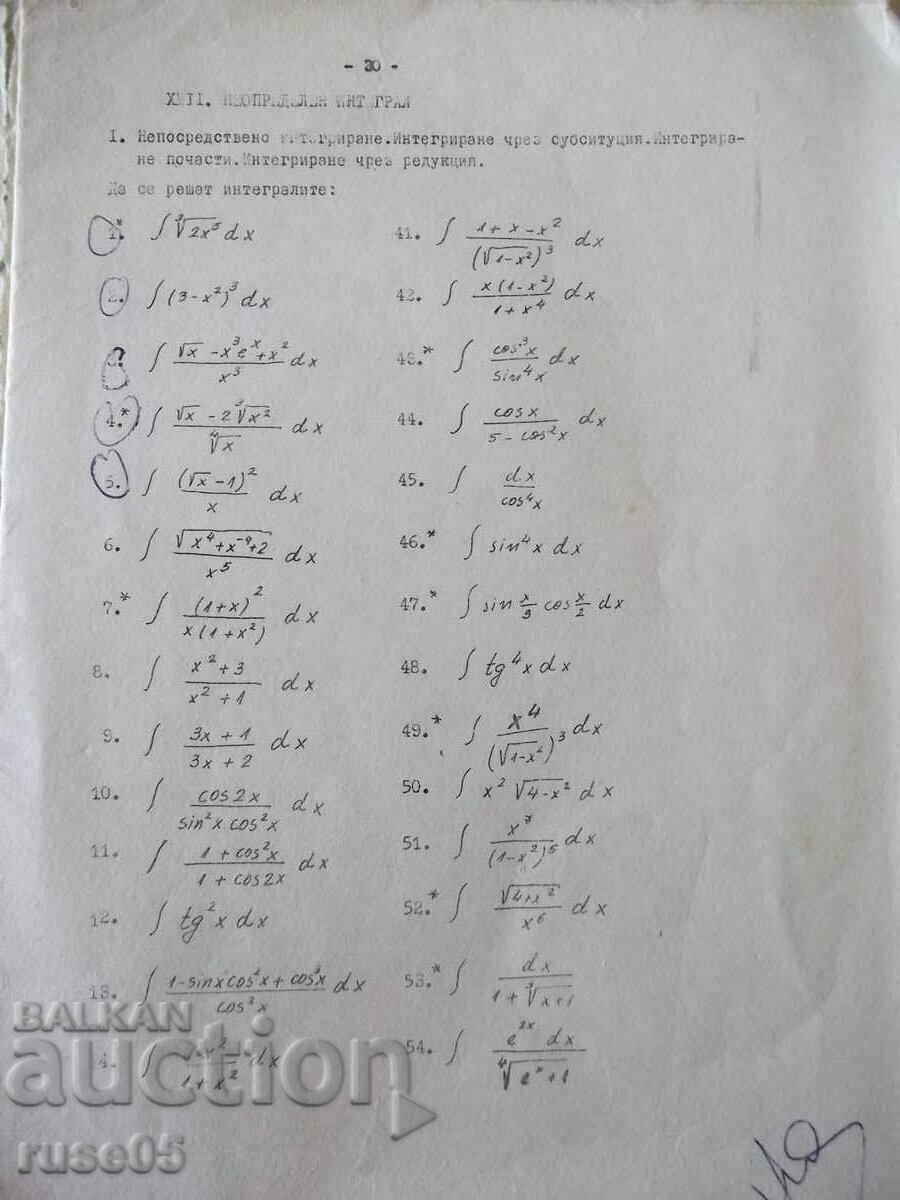 - 30 -
XVII. НЕОПРЕДЕЛЕН ИНТЕГРАЛ
I. Непосредствено интегриране.Интегриране чрез субституция.Интегрира-
не почасти.Интегриране чрез редукция.
Да се решат интегралите:
1.* ∫ ∛(2x⁵) dx
2. ∫ (3 - x²)³ dx
3. ∫ (√x - x³eˣ + x²)/x³ dx
4.* ∫ (√x - 2∛(x²))/∜x dx
5. ∫ (√x - 1)²/x dx
6. ∫ √(x⁴ + x⁻⁴ + 2)/x⁵ dx
7.* ∫ (1+x)²/(x(1+x²)) dx
8. ∫ (x² + 3)/(x² + 1) dx
9. ∫ (3x + 1)/(3x + 2) dx
10. ∫ cos2x/(sin²x.cos²x) dx
11. ∫ (1 + cos²x)/(1 + cos2x) dx
12. ∫ tg²x dx
13. ∫ (1 - sinxcos²x + cos³x)/cos²x dx
4. ∫ x²/(1 + x²) dx
41. ∫ (1 + x - x²)/(√(1-x²))³ dx
42. ∫ x(1-x²)/(1 + x⁴) dx
43.* ∫ cos³x/sin⁴x dx
44. ∫ cosx/(5 - cos²x) dx
45. ∫ dx/cos⁴x
46.* ∫ sin⁴x dx
47.* ∫ sin x/3 cos x/2 dx
48. ∫ tg⁴x dx
49.* ∫ x⁴/(√(1-x²))³ dx
50. ∫ x² √(4-x²) dx
51. ∫ x⁷/(1-x²)⁵ dx
52.* ∫ √(4+x²)/x⁶ dx
53.* ∫ dx/(1 + ∛(x+1))
54. ∫ e²ˣ dx/∜(eˣ+1)
BALKAN
auction
ruse05